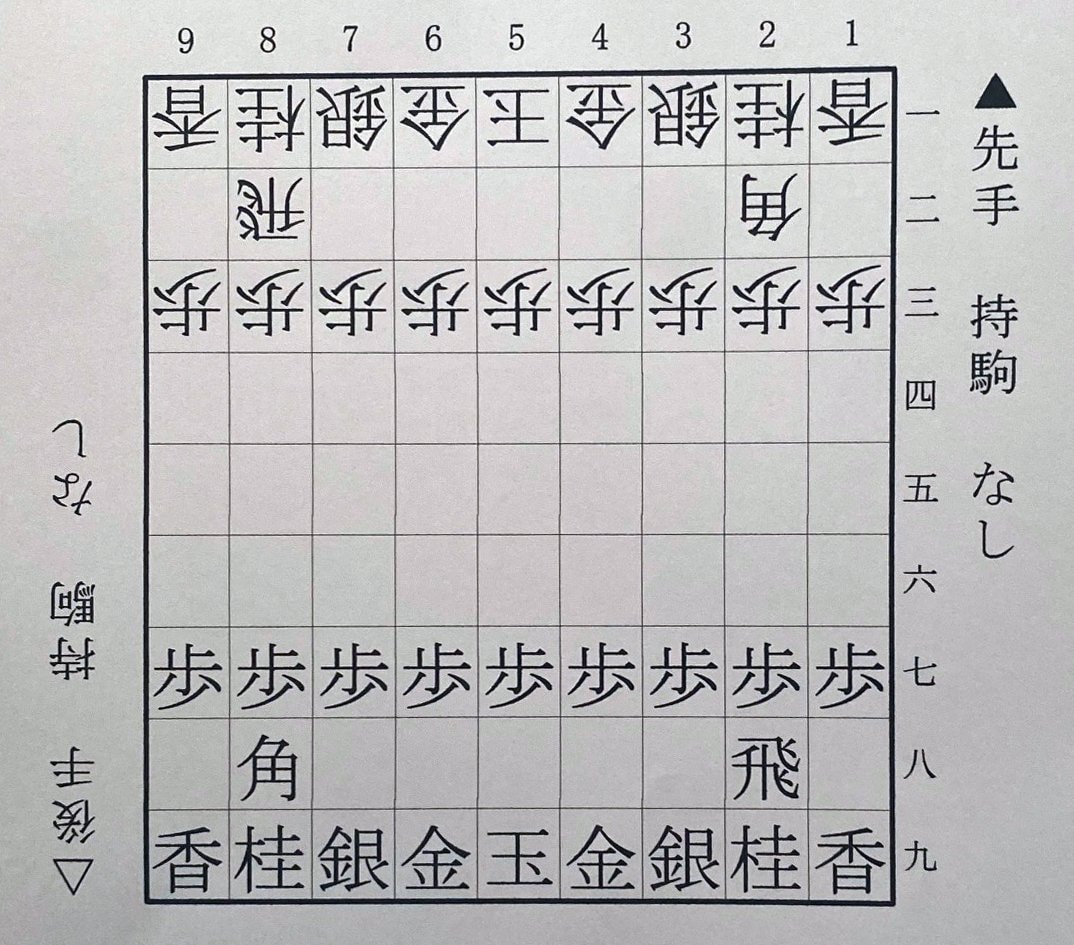 9 8 7 6 5 4 3 2 1
香 桂 銀 金 王 金 銀 桂 香 一
飛 角 二
歩 歩 歩 歩 歩 歩 歩 歩 歩 三
四
五
六
歩 歩 歩 歩 歩 歩 歩 歩 歩 七
角 飛 八
香 桂 銀 金 玉 金 銀 桂 香 九
▲先手 持駒 なし
△後手 持駒 なし